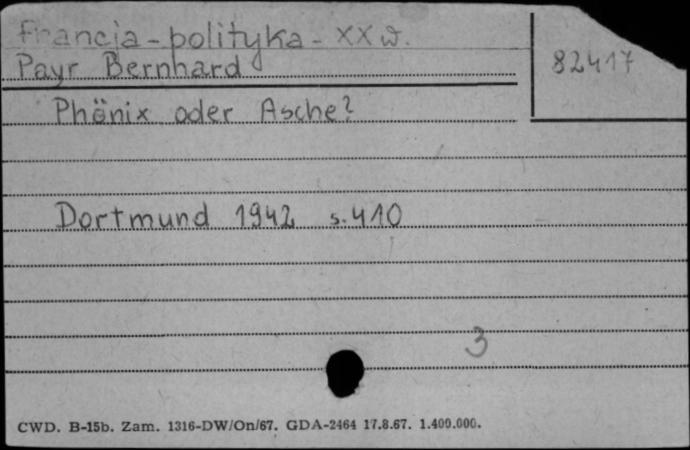 Francja - polityka - XX w.
82417
Payr Bernhard
Phönix oder Asche?
Dortmund 1942 s. 410
3
CWD. B-15b. Zam. 1316-DW/On/67. GDA-2464 17.8.67. 1.400.000.